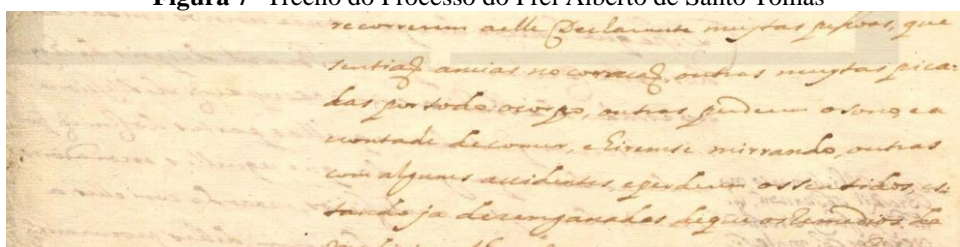 Figura 7 Trecho do Processo do Frei Alberto de Santo Tomás
recorrerem a elle Declarante muytas pessoas, que
sentiaõ ancias no corraçaõ, outras muytas pica-
das por todo o corpo, outras perderem o sono, e a
vontade de comer, e hiremse mirrando, outras
com alguns accidentes, e perderem os sentidos, es-
tando ja desenganadas de que os remedios da